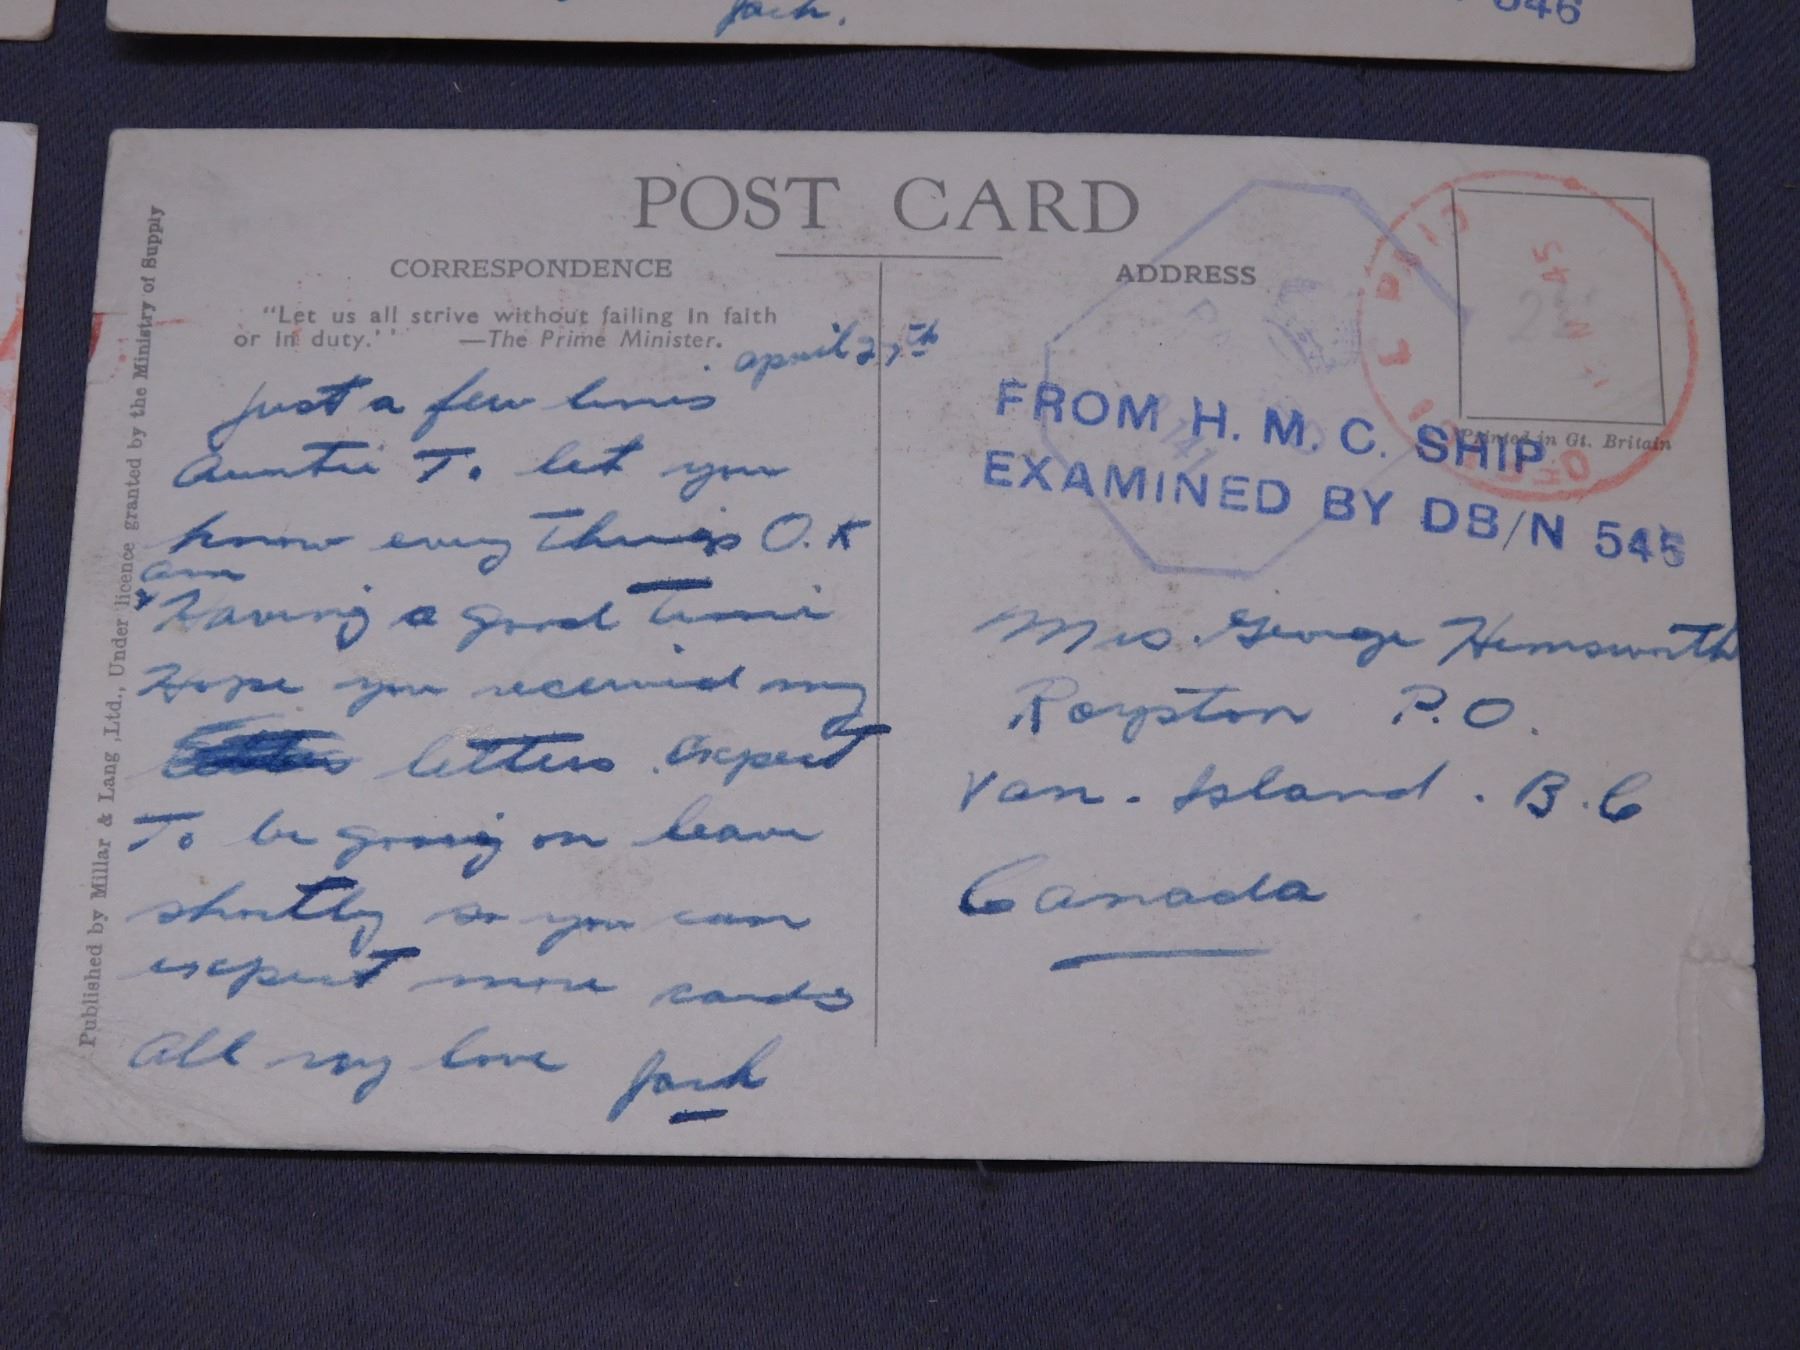 Jack.
546
POST CARD
CORRESPONDENCE
ADDRESS
"Let us all strive without failing in faith
or in duty." —The Prime Minister.
April 27th
Just a few lines
Auntie To let you
know every thing's O.K
am
Having a good time
Hope you received my
letters. Expect
To be going on leave
shortly so you can
expect more cards
All my love Jack
Published by Millar & Lang, Ltd., Under licence granted by the Ministry of Supply
PAID
45
Printed in Gt. Britain
FROM H. M. C. SHIP
EXAMINED BY DB/N 545
Mrs. George Hemsworth
Royston P.O.
Van. Island. B.C
Canada